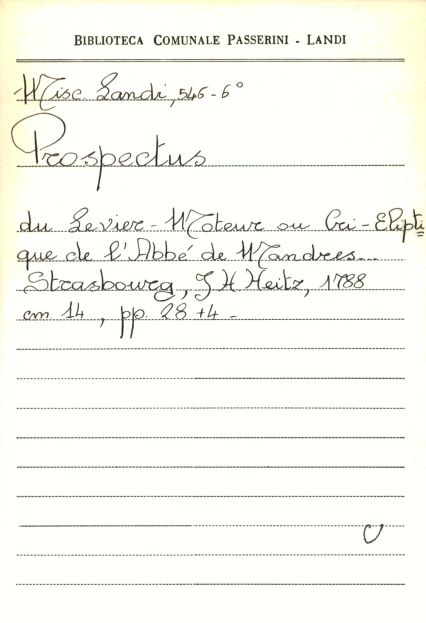 BIBLIOTECA COMUNALE PASSERINI - LANDI
Misc Landi, 546-6°
Prospectus
du Levier-Moteur ou Cri-Elipti
que de l'Abbé de Mandres...
Strasbourg, J H Heitz, 1788
cm 14, pp. 28+4 -